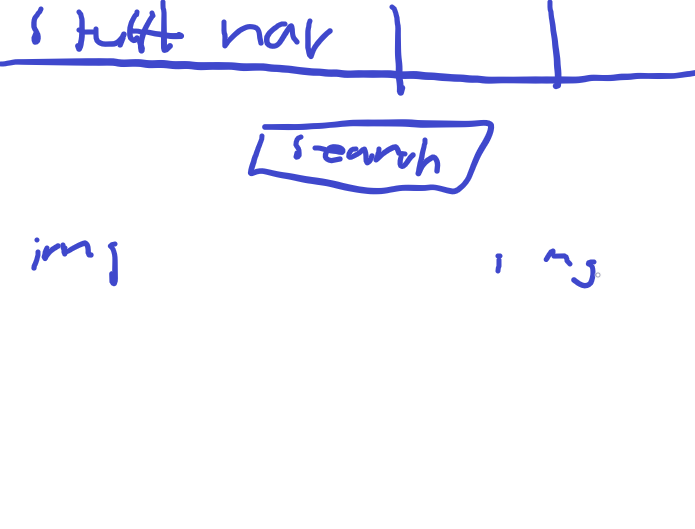 stuff nav
search
img img